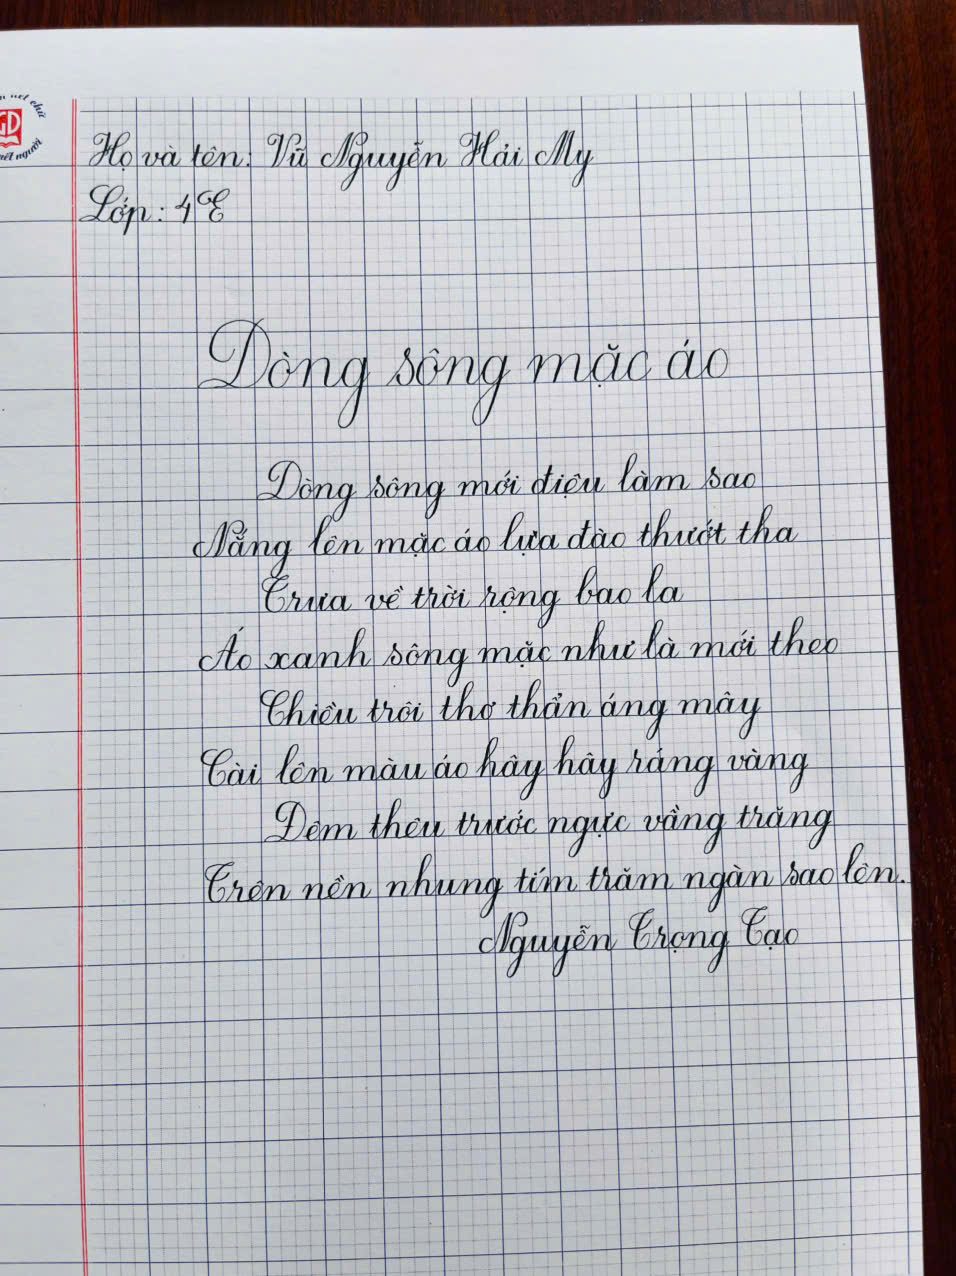 nét chữ
GD
nết người
Họ và tên: Vũ Nguyễn Hải My
Lớp: 4E
Dòng sông mặc áo
Dòng sông mới điệu làm sao
Nắng lên mặc áo lụa đào thướt tha
Trưa về trời rộng bao la
Áo xanh sông mặc như là mới theo
Chiều trôi thơ thẩn áng mây
Cài lên màu áo hây hây ráng vàng
Đêm thêu trước ngực vầng trăng
Trên nền nhung tím trăm ngàn sao lên.
Nguyễn Trọng Tạo